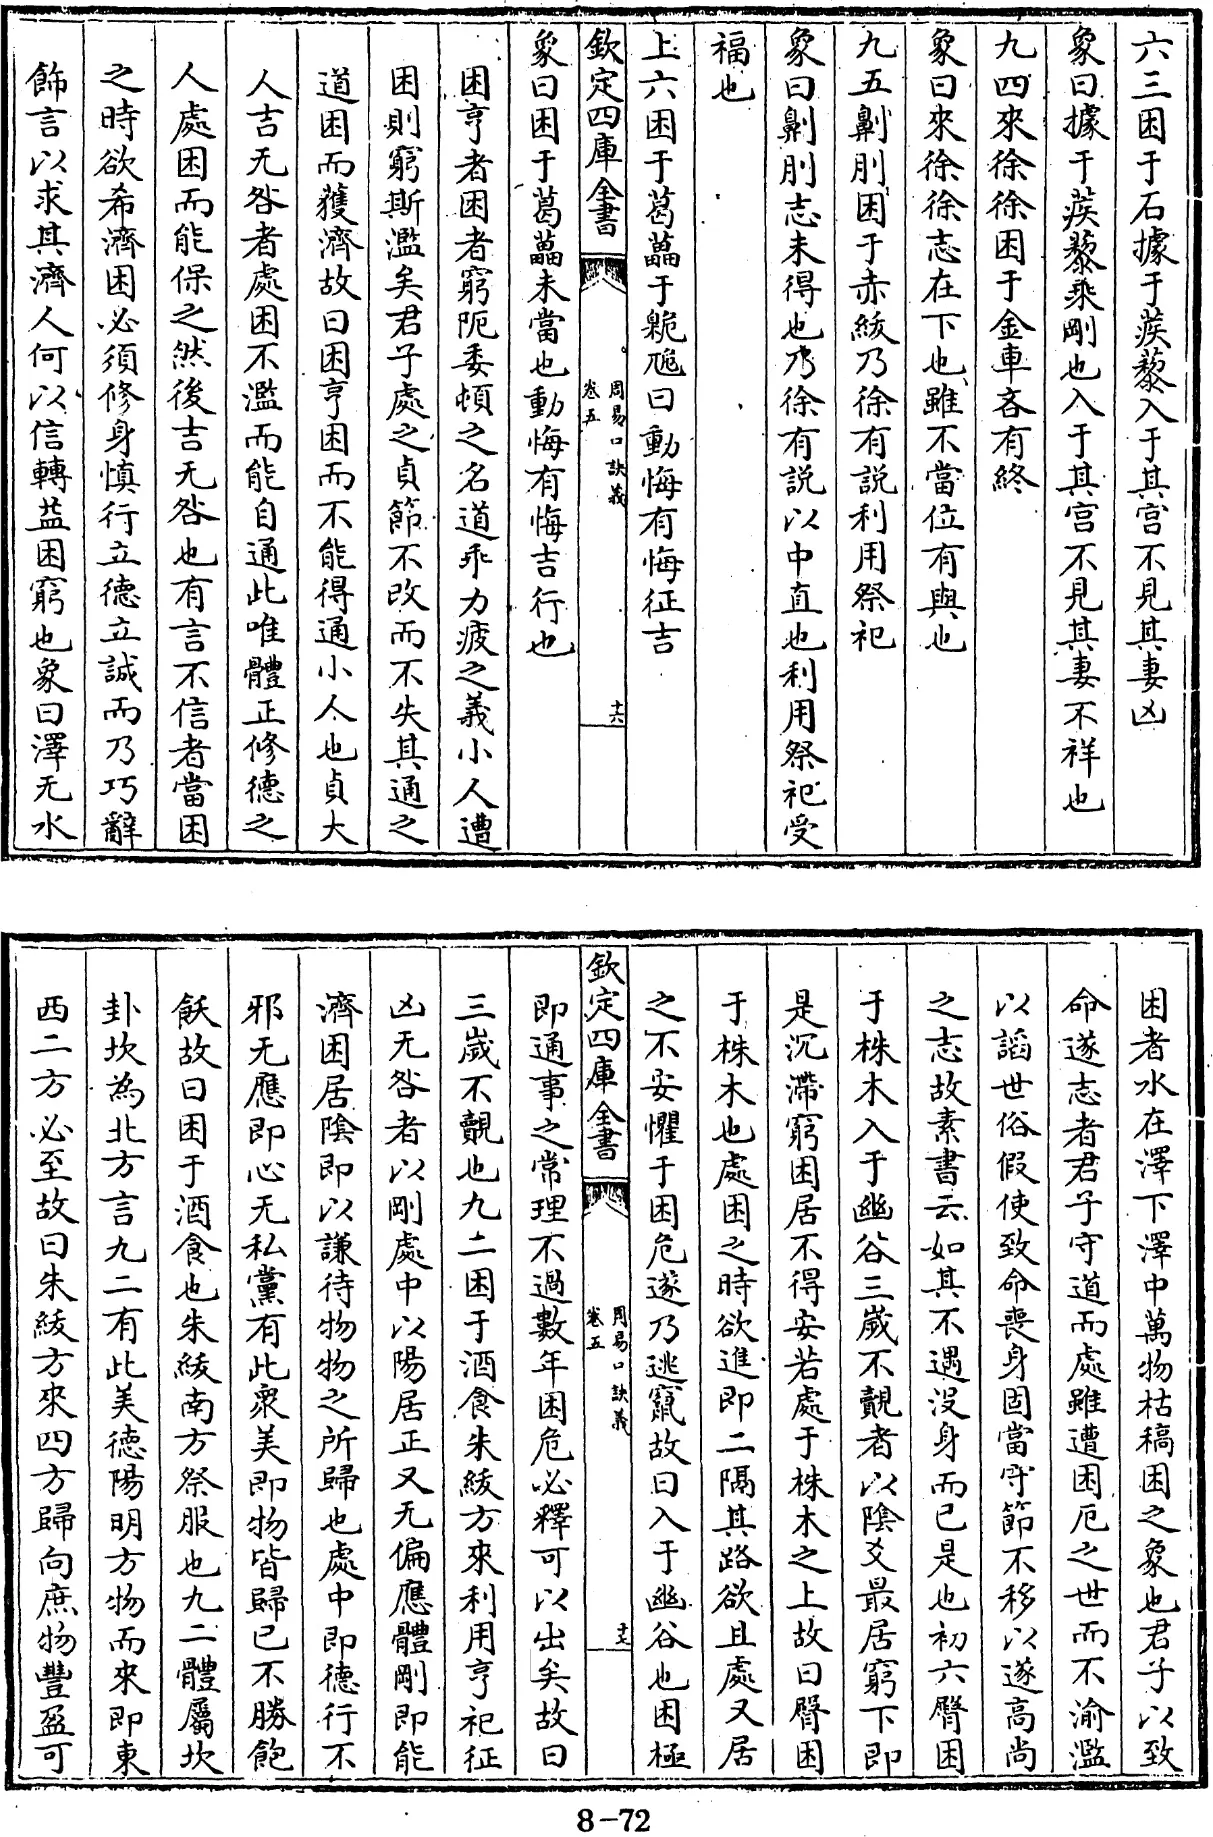 六三困于石據于蒺藜入于其宮不見其妻凶
象曰據于蒺藜乘剛也入于其宮不見其妻不祥也
九四來徐徐困于金車吝有終
象曰來徐徐志在下也雖不當位有與也
九五劓刖困于赤紱乃徐有説利用祭祀
象曰劓刖志未得也乃徐有説以中直也利用祭祀受
福也
上六困于葛藟于臲卼曰動悔有悔征吉
欽定四庫全書
周易口訣義
卷五
十六
象曰困于葛藟未當也動悔有悔吉行也
困亨者困者窮阨委頓之名道乖力疲之義小人遭
困則窮斯濫矣君子處之貞節不改而不失其通之
道困而獲濟故曰困亨困而不能得通小人也貞大
人吉无咎者處困不濫而能自通此唯體正修德之
人處困而能保之然後吉无咎也有言不信者當困
之時欲希濟困必須修身慎行立德立誠而乃巧辭
飾言以求其濟人何以信轉益困窮也象曰澤无水
困者水在澤下澤中萬物枯稿困之象也君子以致
命遂志者君子守道而處雖遭困厄之世而不渝濫
以謟世俗假使致命喪身固當守節不移以遂高尚
之志故素書云如其不遇没身而已是也初六臀困
于株木入于幽谷三歲不覿者以陰爻最居窮下即
是沉滯窮困居不得安若處于株木之上故曰臀困
于株木也處困之時欲進即二隔其路欲且處又居
之不安懼于困危遂乃逃竄故曰入于幽谷也困極
欽定四庫全書
周易口訣義
卷五
十七
即通事之常理不過數年困危必釋可以出矣故曰
三歲不覿也九二困于酒食朱紱方來利用亨祀征
凶无咎者以剛處中以陽居正又无偏應體剛即能
濟困居陰即以謙待物物之所歸也處中即德行不
邪无應即心无私黨有此衆美即物皆歸已不勝飽
飫故曰困于酒食也朱紱南方祭服也九二體屬坎
卦坎為北方言九二有此美德陽明方物而來即東
西二方必至故曰朱紱方來四方歸向庶物豐盈可
8-72